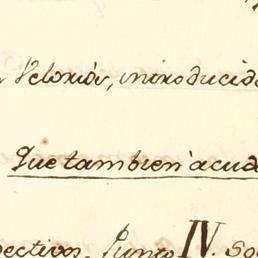 Velorios, introducid
Que tambien acud
pectivos. Punto IV. So